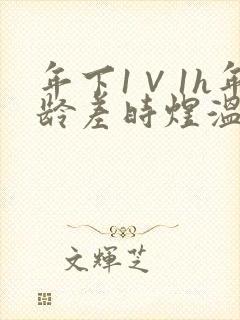 年下1V1h年
龄差时煜温
文輝芝